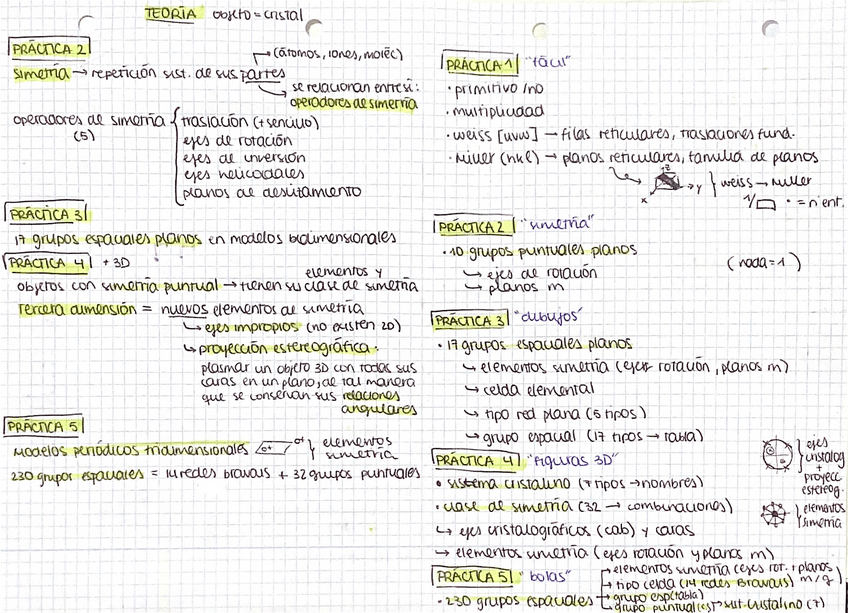 TEORÍA objeto = cristal
PRÁCTICA 2
(átomos, iones, moléc)
simetría → repetición sist. de sus partes
se relacionan entre sí:
operadores de simetría
operadores de simetría
(5)
traslación (+ sencillo)
ejes de rotación
ejes de inversión
ejes helicoidales
planos de deslizamiento
PRÁCTICA 3
17 grupos espaciales planos en modelos bidimensionales
PRÁCTICA 4 + 3D
elementos y
objetos con simetría puntual → tienen su clase de simetría
Tercera dimensión = nuevos elementos de simetría
↳ ejes impropios (no existen 2D)
↳ proyección estereográfica:
plasmar un objeto 3D con todas sus
caras en un plano, de tal manera
que se conservan sus relaciones
angulares
PRÁCTICA 5
Modelos periódicos tridimensionales } elementos
simetría
230 grupos espaciales = 14 redes bravais + 32 grupos puntuales
PRÁCTICA 1 "fácil"
· primitivo / no
· multiplicidad
· weiss [uvw] → filas reticulares, traslaciones fund.
· Miller (hkl) → planos reticulares, familia de planos
z
x
y
} weiss → Miller
1/ · = nº ent.
PRÁCTICA 2 "simetría"
· 10 grupos puntuales planos
↳ ejes de rotación
↳ planos m
(nada = 1)
PRÁCTICA 3 "dibujos"
· 17 grupos espaciales planos
↳ elementos simetría (ejes rotación, planos m)
↳ celda elemental
↳ tipo red plana (5 tipos)
↳ grupo espacial (17 tipos → tabla)
PRÁCTICA 4 "figuras 3D"
· sistema cristalino (7 tipos → nombres)
· clase de simetría (32 → combinaciones)
↳ ejes cristalográficos (cab) y caras
↳ elementos simetría (ejes rotación y planos m)
} ejes
cristalog
+
proyecc
estereog.
} elementos
simetría
PRÁCTICA 5 "bolas"
· 230 grupos espaciales
→ elementos simetría (ejes rot. + planos
m/g)
→ tipo celda (14 redes Bravais)
→ grupo esp (tabla)
→ grupo puntual (cs) → sist. cristalino (7)